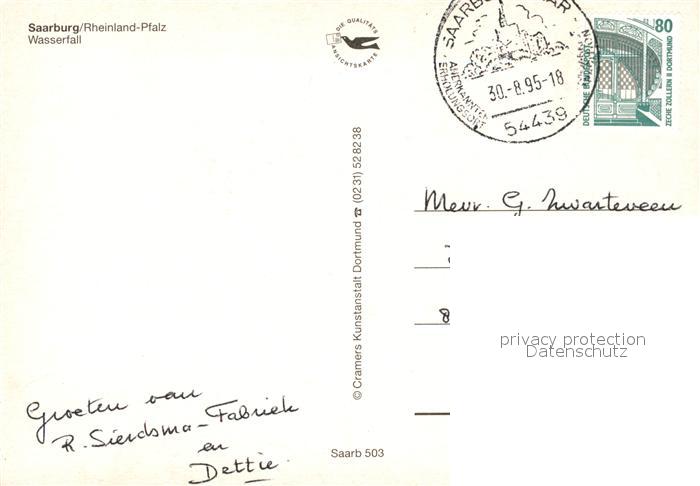 Saarburg/Rheinland-Pfalz
Wasserfall
DIE QUALITÄTS
ANSICHTSKARTE
SAARBU AAR
ANERKANNTER
ERHOLUNGSORT
30.-8.95-18
54439
80
DEUTSCHE BUNDESPOST
ZECHE ZOLLERN II DORTMUND
© Cramers Kunstanstalt Dortmund ☎ (0231) 528238
Mevr. G. Zwarteveen
8
privacy protection
Datenschutz
Groeten van
R. Sierdsma-Fabriek
en
Dettie.
Saarb 503